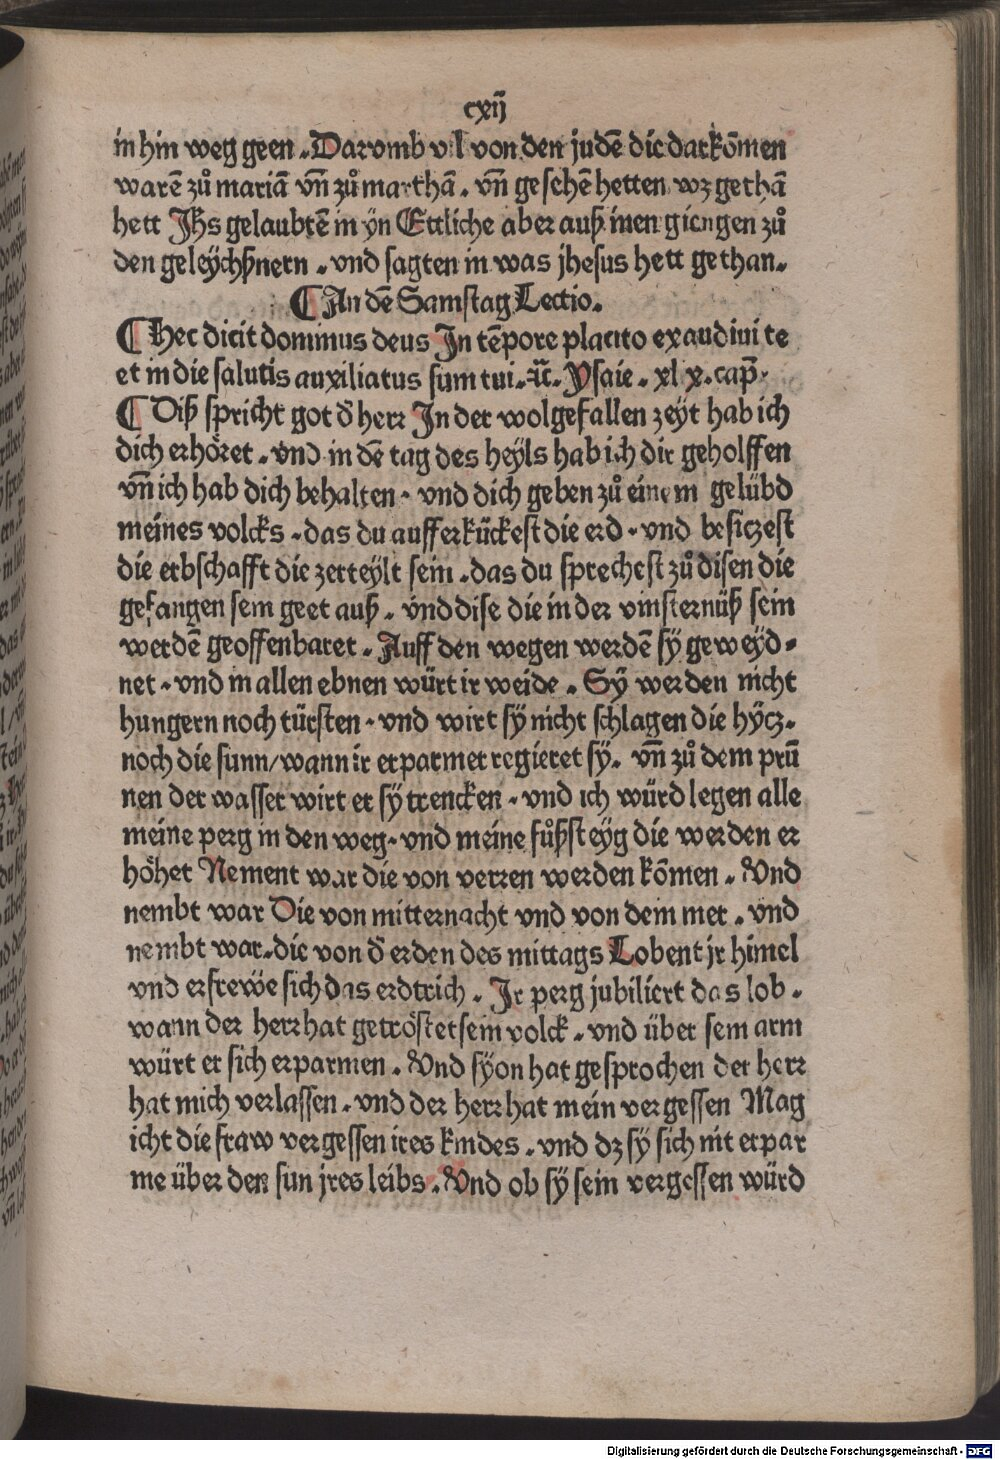 cxij
in hin weg geen . Darvmb vil von den judē die dar kōmen
warē zů mariā vñ zů marthā . vñ geschē hetten wz gethā
hett Jhs gelaubtē in ÿn Ettliche aber auß inen giengen zů
den geleÿchßnern . vnd sagten in was jhesus hett gethan .
¶ An dē Samstag Lectio .
¶ Hec dicit dominus deus In tēpore placito exaudiui te
et in die salutis auxiliatus sum tui . ⁊c̄ . Ysaie . xl ix . cap̄ .
¶ Diß spricht got d̄ herr In der wolgefallen zeÿt hab ich
dich erhöret . vnd in dē tag des heÿls hab ich dir geholffen
vñ ich hab dich behalten . vnd dich geben zů einem gelübd
meines volcks . das du aufferkückest die erd . vnd besiczest
die erbschafft die zerteÿlt sein . das du sprechest zů disen die
gefangen sein geet auß . vnd dise die in der vinsternüß sein
werdē geoffenbaret . Auff den wegen werdē sÿ geweÿd⸗
net . vnd in allen ebnen würt ir weide . Sÿ werden nicht
hungern noch türsten . vnd wirt sÿ nicht schlagen die hÿcz .
noch die sunn / wann ir erparmer regieret sÿ . vñ zů dem prū
nen der wasser wirt er sÿ trencken . vnd ich würd legen alle
meine perg in den weg . vnd meine fůßsteÿg die werden er
höhet Nement war die von verren werden kōmen . Vnd
nembt war Die von mitternacht vnd von dem mer . vnd
nembt war . die von d̄ erden des mittags Lobent jr himel
vnd erfrewe sich das erdtrich . Ir perg jubiliert das lob .
wann der herr hat getröstet sein volck . vnd über sein arm
würt er sich erparmen . Vnd sÿon hat gesprochen der herr
hat mich verlassen . vnd der herr hat mein vergessen Mag
icht die fraw vergessen ires kindes . vnd dz sÿ sich nit erpar
me über den sun jres leibs . Vnd ob sÿ sein vergessen würd
Digitalisierung gefördert durch die Deutsche Forschungsgemeinschaft - DFG